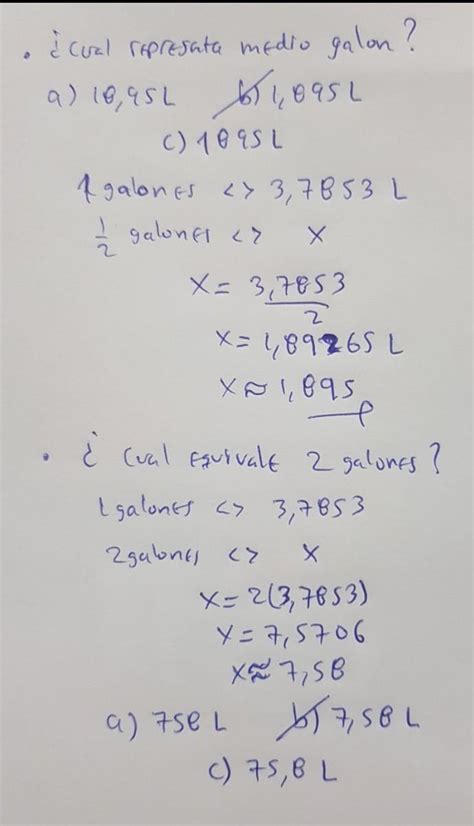 • ¿cual represata medio galon?
a) 18,95L b) 1,895L
c) 1895L
1 galones <> 3,7853 L
1/2 galones <> x
x = 3,7853/2
x = 1,89265 L
x ≈ 1,895
• ¿ cual equivale 2 galones?
1 galones <> 3,7853
2 galones <> x
x = 2(3,7853)
x = 7,5706
x ≈ 7,58
a) 758 L b) 7,58 L
c) 75,8 L